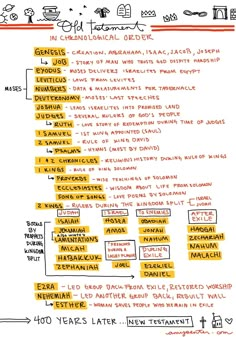 Old Testament
IN CHRONOLOGICAL ORDER
GENESIS - CREATION, ABRAHAM, ISAAC, JACOB, JOSEPH
JOB - STORY OF MAN WHO TRUSTS GOD DESPITE HARDSHIP
EXODUS - MOSES DELIVERS ISRAELITES FROM EGYPT
LEVITICUS - LAWS FROM LEVITES
MOSES
NUMBERS - DATA & MEASUREMENTS FOR TABERNACLE
DEUTERONOMY - MOSES' LAST SPEECHES
JOSHUA - LEADS ISRAELITES INTO PROMISED LAND
JUDGES - SEVERAL RULERS OF GOD'S PEOPLE
RUTH - LOVE STORY OF REDEMPTION DURING TIME OF JUDGES
1 SAMUEL - 1ST KING APPOINTED (SAUL)
2 SAMUEL - RULE OF KING DAVID
PSALMS - HYMNS (MOST BY DAVID)
1 & 2 CHRONICLES - RELIGIOUS HISTORY DURING RULE OF KINGS
1 KINGS - RULE OF KING SOLOMON
PROVERBS - WISE TEACHINGS OF SOLOMON
ECCLESIASTES - WISDOM ABOUT LIFE FROM SOLOMON
SONG OF SONGS - LOVE POEMS BY SOLOMON
2 KINGS - RULERS DURING THE KINGDOM SPLIT
BOOKS BY PROPHETS DURING KINGDOM SPLIT
JUDAH
ISAIAH
JEREMIAH
LAMENTATIONS
MICAH
HABAKKUK
ZEPHANIAH
ISRAEL
HOSEA
AMOS
JOEL
TO ENEMIES
OBADIAH
JONAH
NAHUM
DURING EXILE
EZEKIEL
DANIEL
AFTER EXILE
HAGGAI
ZECHARIAH
NAHUM
MALACHI
EZRA - LED GROUP BACK FROM EXILE, RESTORED WORSHIP
NEHEMIAH - LED ANOTHER GROUP BACK, REBUILT WALL
ESTHER - WOMAN SAVES PEOPLE WHO REMAIN IN EXILE
400 YEARS LATER... NEW TESTAMENT